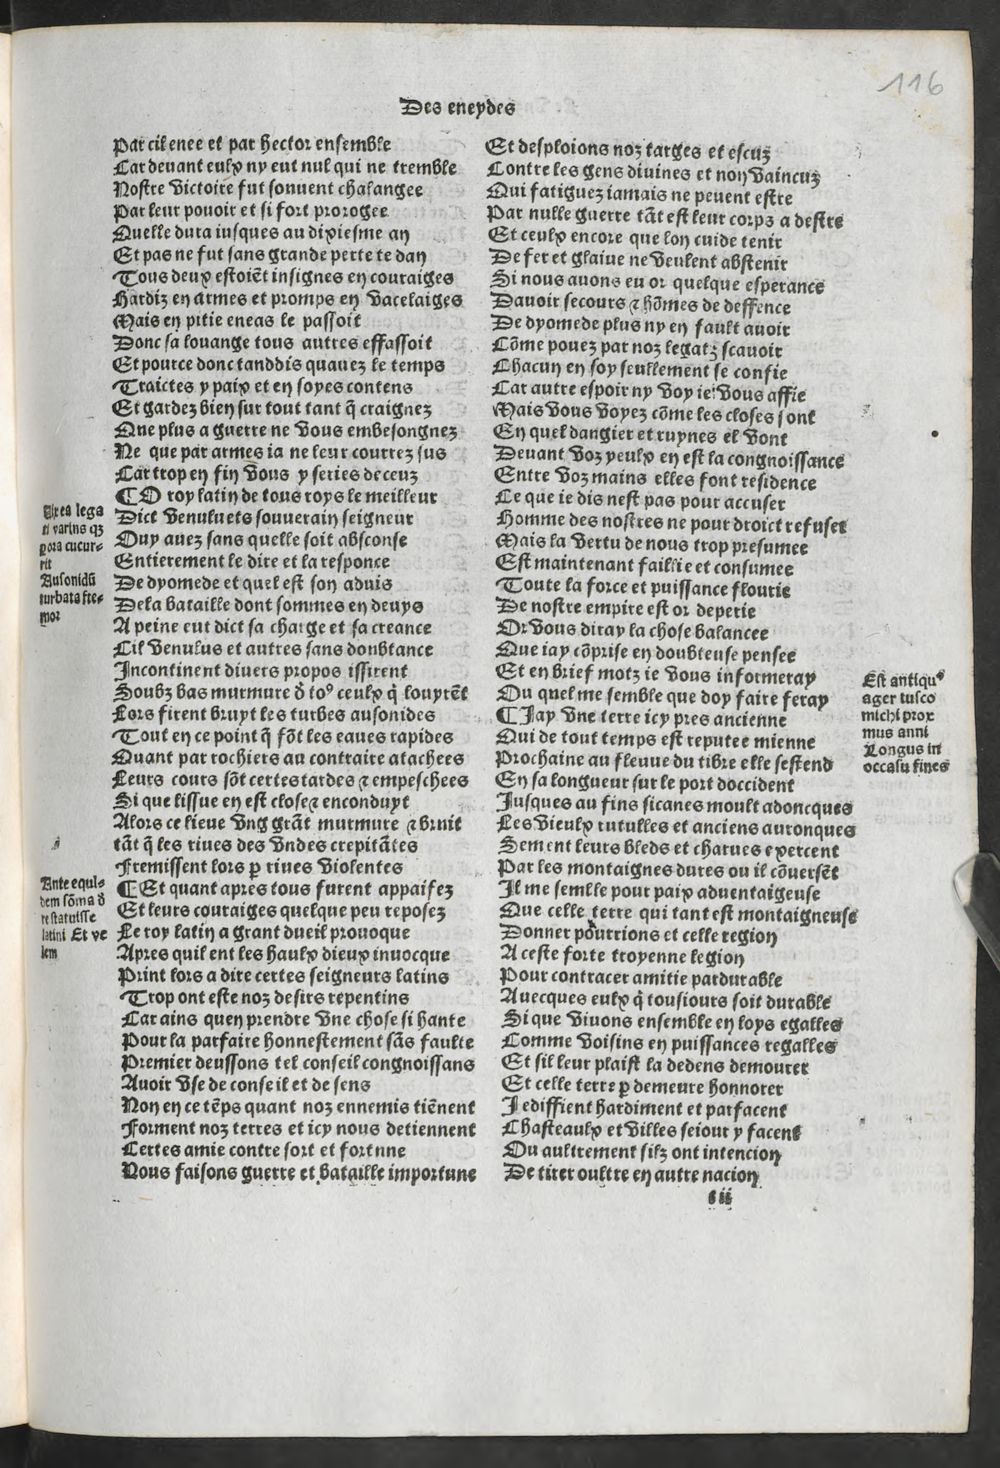 116
Des eneydes
Par cil enee et par hector ensemble
Car deuant eulx ny eut nul qui ne tremble
Nostre victoire fut souuent chalangee
Par leur pouoir et si fort prorogee
Quelle dura iusques au dixiesme an
Et pas ne fut sans grande perte te dan
Tous deux estoiẽt insignes en couraiges
Hardiz en armes et promps en vacelaiges
Mais en pitie eneas le passoit
Donc sa louange tous autres effassoit
Et pource donc tanddis quauez le temps
Traictes y paix et en soyes contens
Et gardez bien sur tout tant q̃ craignez
Que plus a guerre ne vous embesongnez
Ne que par armes ia ne leur courrez sus
Car trop en fin vous y series deceuz
¶ O roy latin de tous roys le meilleur
Dict venulus et souuerain seigneur
Ouy auez sans quelle soit absconse
Entierement le dire et la responce
De dyomede et quel est son aduis
De la bataille dont sommes en deuys
A peine eut dict sa charge et sa creance
Cil venulus et autres sans doubtance
Incontinent diuers propos issirent
Soubz bas murmure d̃ to⁹ ceulx q̃ louyrẽt
Lors firent bruyt les turbes ausonides
Tout en ce point q̃ fõt les eaues rapides
Quant par rochiers au contraire atachees
Leurs cours sõt certes tardes ⁊ empeschees
Si que lissue en est close ⁊ enconduyt
Alors ce lieue vng grãt murmure ⁊ bruit
tãt q̃ les riues des vndes crepitãtes
Fremissent lors ꝑ riues violentes
¶ Et quant apres tous furent appaisez
Et leurs couraiges quelque peu reposez
Le roy latin a grant dueil prouoque
Apres quil ent les haulx dieux inuocque
Print lors a dire certes seigneurs latins
Trop ont este noz desirs repentins
Car ains quen prendre vne chose si haute
Pour la parfaire honnestement sãs faulte
Premier deussons tel conseil congnoissans
Auoir vse de conseil et de sens
Non en ce tẽps quant noz ennemis tiẽnent
Forment noz terres et icy nous detiennent
Certes amie contre sort et fortnne
Nous faisons guerre et bataille importune
Et desploions noz targes et escuz
Contre les gens diuines et non vaincuz
Qui fatiguez iamais ne peuent estre
Par nulle guerre tãt est leur corps a destre
Et ceulx encore que lon cuide tenir
De fer et glaiue ne veulent abstenir
Si nous auons eu or quelque esperance
Dauoir secours ⁊ hõmes de deffence
De dyomede plus ny en fault auoir
Cõme pouez par noz legatz scauoir
Chacun en soy seullement se confie
Car autre espoir ny voy ie vous affie
Mais vous voyez cõme les closes sont
En quel dangier et ruynes el vont
Deuant voz yeulx en est la congnoissance
Entre voz mains elles font residence
Ce que ie dis nest pas pour accuser
Homme des nostres ne pour droict refuser
Mais la vertu de nous trop presumee
Est maintenant faillie et consumee
Toute la force et puissance flourie
De nostre empire est or deperie
Or vous diray la chose balancee
Que iay cõprise en doubteuse pensee
Et en brief motz ie vous informeray
Ou quel me semble que doy faire feray
¶ Jay vne terre icy pres ancienne
Qui de tout temps est reputee mienne
Prochaine au fleuue du tibre elle sestend
En sa longueur sur le port doccident
Jusques au fins sicanes moult adoncques
Les vieulx rutulles et anciens auronques
Sement leurs bleds et charues exercent
Par les montaignes dures ou il cõuersẽt
Il me semlle pour paix aduentaigeuse
Que celle terre qui tant est montaigneuse
Donner pourrions et celle region
A ceste forte troyenne legion
Pour contracer amitie pardurable
Auecques eulx q̃ tousiours soit durable
Si que viuons ensemble en loys egalles
Comme voisins en puissances regalles
Et sil leur plaist la dedens demourer
Et celle terre ꝑ demeure honnorer
Jediffient hardiment et parfacent
Chasteaulx et villes seiour y facent
Ou aultrement silz ont intencion
De tirer oultre en autre nacion
Vix ea lega
ti varins qȝ
ꝑ ora cucur-
rit
Ausonidũ
turbata fre-
mor
Ante equi-
dem sũma d̃
re statuisse
latini Et ve
lem
Est antiqu⁹
ager tusco
michi prox
mus anni
Longus in
occasu fines
s ii